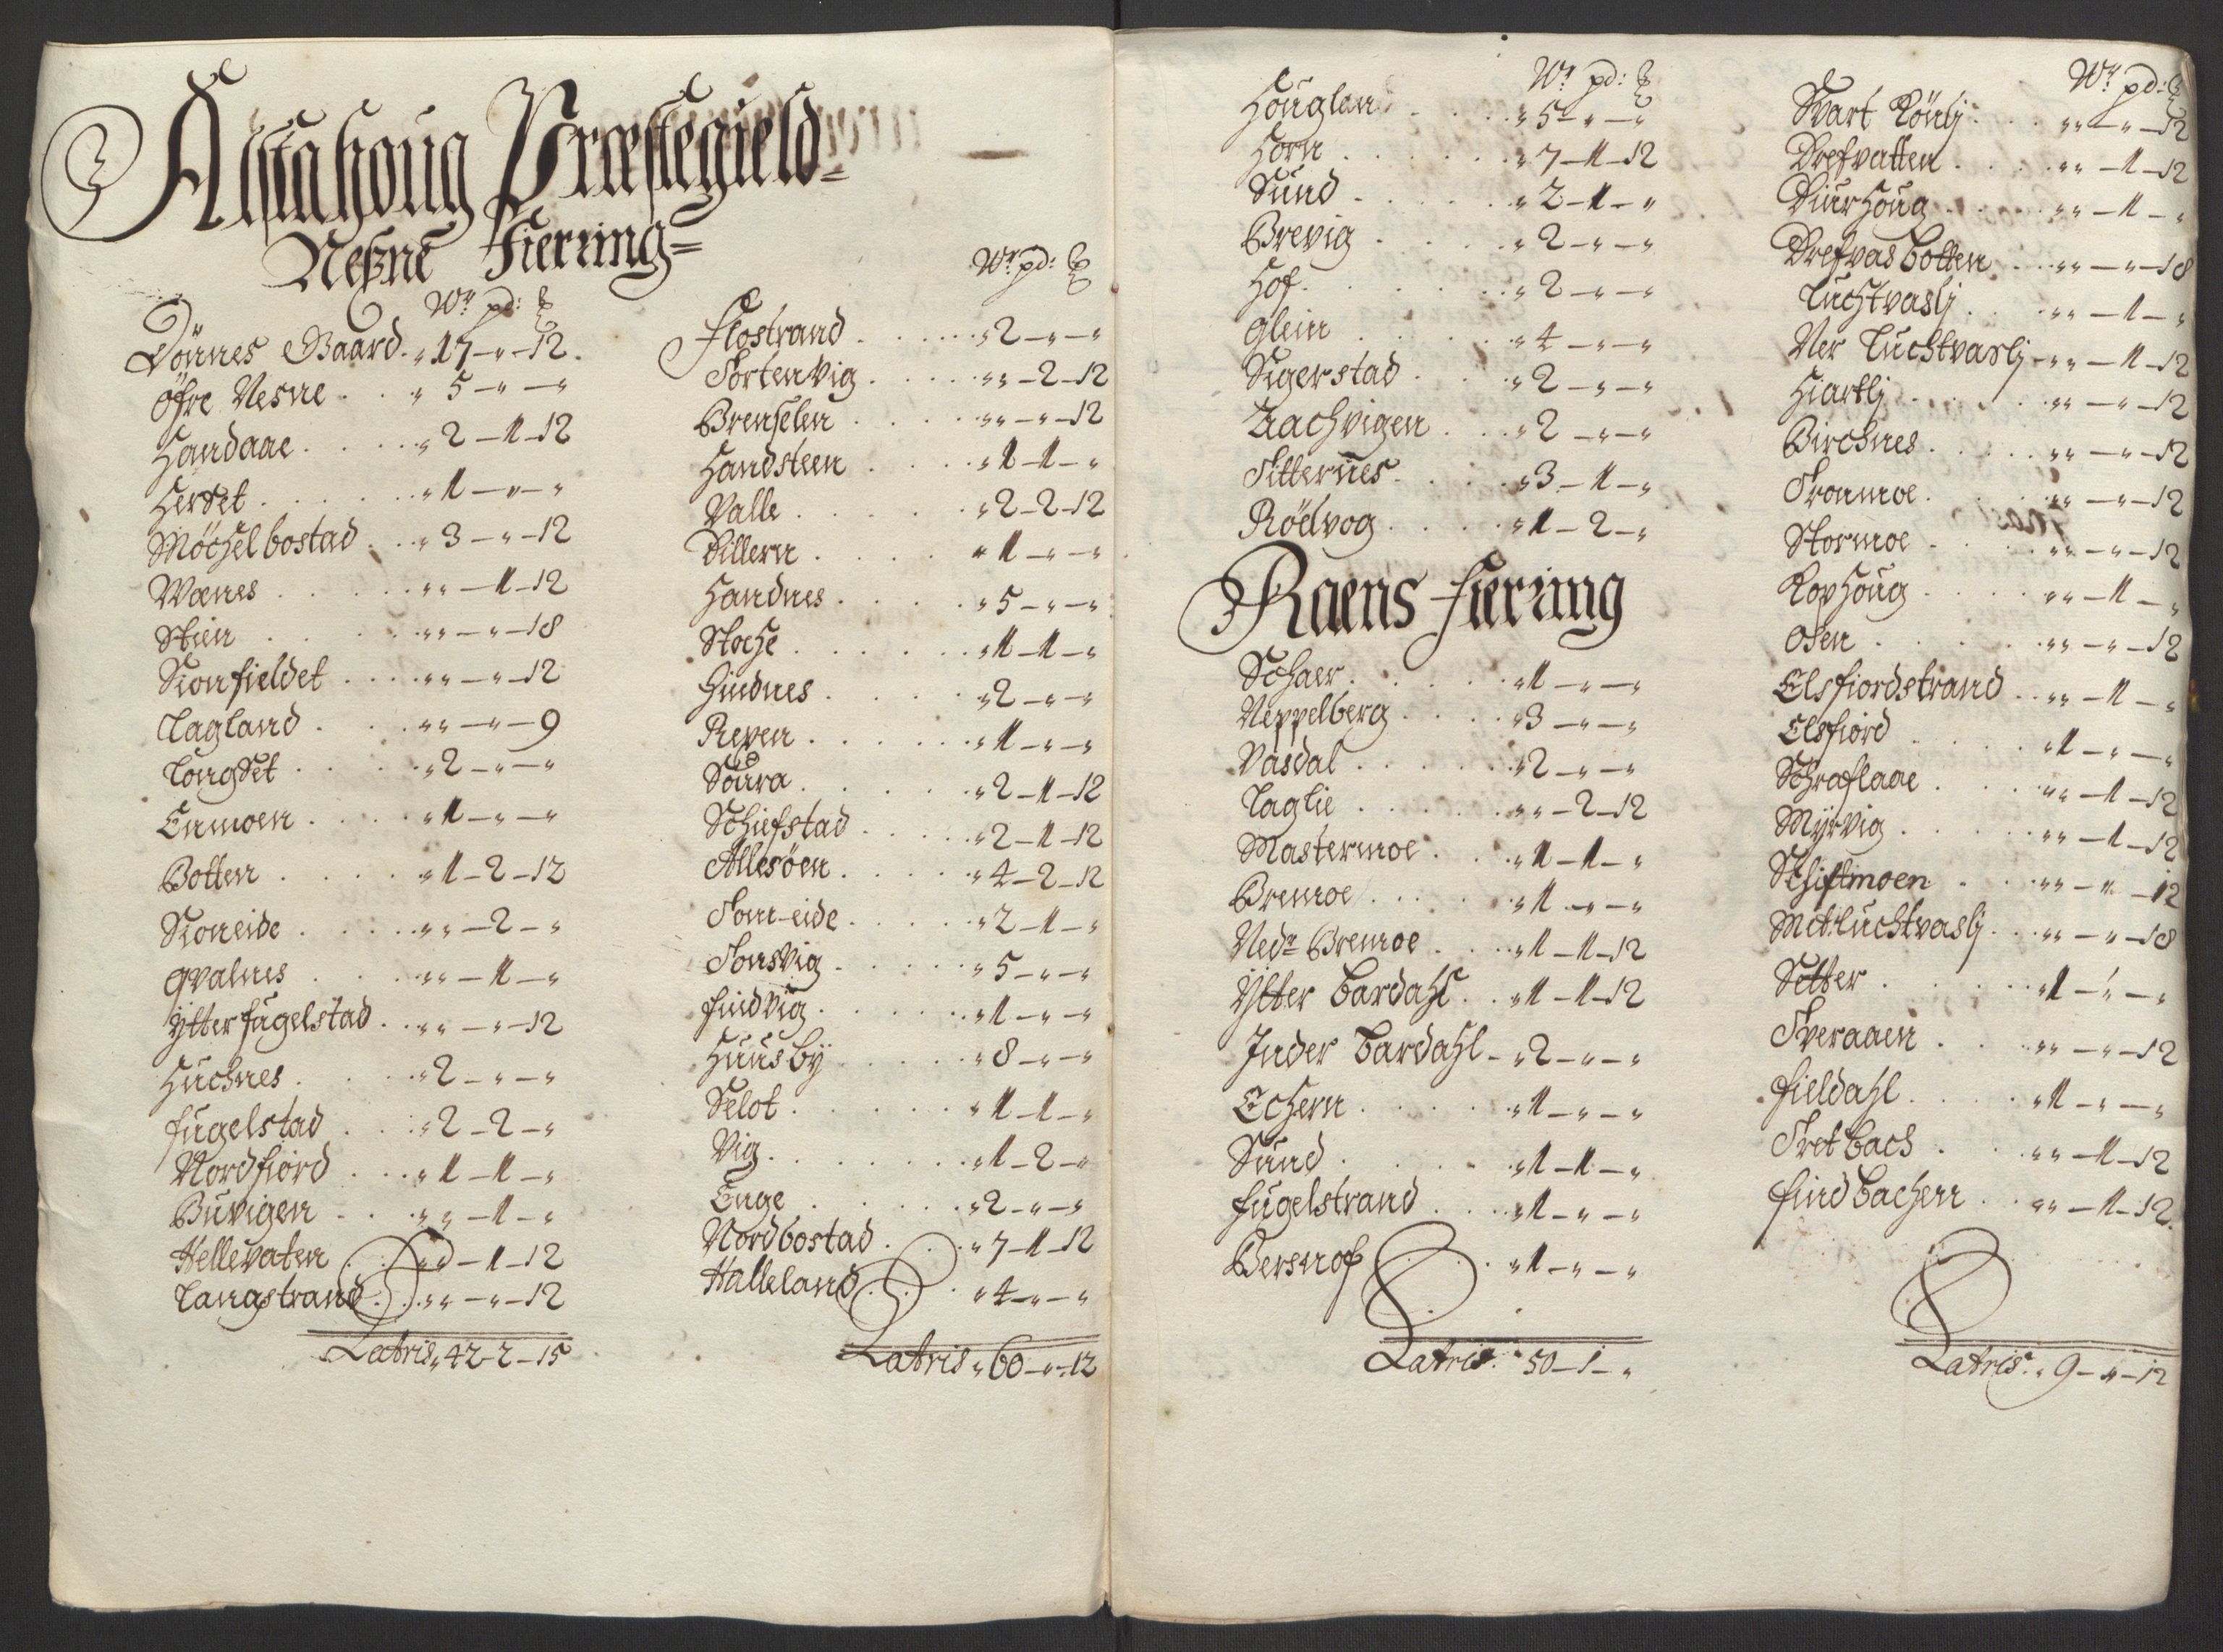 Alstahoug Præstegield-
Nessne Fierring-
Wr pd: ℔
Dönnes Gaard. „ 17 - „ - 12.
Öfre Nesne . . „ 5 - „ - „
Handaae . . . „ 2 - 1 - 12
Herset . . . „ 1 - „ - „
Möchelbostad . . „ 3 - „ - 12
Wænes . . . „ „ - 1 - 12
Stien . . . „ „ - „ - 18
Sionfieldet . . . „ „ - „ - 12
Lagland . . . „ „ - „ - 9
Longset . . . „ 2 - „ - „
Enmoen . . . „ 1 - „ - „
Botten . . . „ 1 - 2 - 12
Sioneide . . . „ „ - 2 - „
Qvalnes . . . „ „ - 1 - „
Ytterfugelstad . . „ „ - „ - 12
Huchnes . . . „ 2 - „ - „
fugelstad . . . „ 2 - 2 - „
Nordfiord . . . „ 1 - 1 - „
Buvigen . . . „ „ - 1 - „
Hellevaten . . „ „ - 1 - 12
Langstrand . . „ „ - „ - 12
Latris „ 42 - 2 - 15
Wr pd: ℔
Flostrand . . . „ 2 - „ - „
Sortenvig . . . „ „ - 2 - 12
Brenselen . . . „ „ - „ - 12
Handsteen . . . „ 1 - 1 - „
Valle . . . „ 2 - 2 - 12
Dillern . . . „ 1 - „ - „
Handnes . . . „ 5 - „ - „
Stoche . . . „ 1 - 1 - „
Hindnes . . . „ 2 - „ - „
Reven . . . „ 1 - „ - „
Soura . . . „ 2 - 1 - 12
Schiefstad . . . „ 2 - 1 - 12
Allesöen . . . „ 4 - 2 - 12
Som-eide . . . „ 2 - 1 - „
Sonsvig . . . „ 5 - „ - „
findvig . . . „ 1 - „ - „
Huusbÿ . . . „ 8 - „ - „
Selot . . . „ 1 - 1 - „
Vig . . . „ 1 - 2 - „
Enge . . . „ 2 - „ - „
Nordbostad . . . „ 7 - 1 - 12
Halleland . . . „ 4 - „ - „
Latris „ 60 - „ - 12
Wr pd: ℔
Houglan . . . „ 5 - „ - „
Horn . . . „ 7 - 1 - 12
Sund . . . „ 2 - 1 - „
Brevig . . . „ 2 - „ - „
Hof . . . „ 2 - „ - „
Glein . . . „ 4 - „ - „
Sigerstad . . . „ 2 - „ - „
Aachvigen . . . „ 2 - „ - „
Sitternes . . . „ 3 - 1 - „
Rödvog . . . „ 1 - 2 - „
Raens fierring
Schaer . . . „ 1 - „ - „
Neppelberg . . . „ 3 - „ - „
Vasdal . . . „ 2 - „ - „
Laglie . . . „ „ - 2 - 12
Mastermoe . . . „ 1 - 1 - „
Bremoe . . . „ 1 - „ - „
Nedr Bremoe . . . „ 1 - 1 - 12
Ytter Bardahl . . „ 1 - 1 - 12
Inder Bardahl - „ 2 - „ - „
Echern . . . „ 1 - „ - „
Sund . . . „ 1 - 1 - „
fugelstrand . . . „ 1 - „ - „
Bersnof . . . „ 1 - „ - „
Latris „ 50 - 1 - „
Wr pd: ℔
Svart Rönlj . . . „ „ - „ - 12
Drefvatten . . . „ „ - 1 - 12
Diurhoug . . . „ „ - 1 - „
Drefvasbotten . . „ „ - „ - 18
Luchtvaslj . . . „ „ - 1 - „
Ner Luchtvaslj - „ „ - 1 - 12
Hiartlj . . . „ „ - „ - 12
Birchnes . . . „ „ - „ - 12
Tronmoe . . . „ „ - „ - 12
Stormoe . . . „ „ - „ - 12
Rophoug . . . „ „ - 1 - „
Osen . . . „ „ - „ - 12
Elsfiordstrand . . „ „ - 1 - „
Elsfiord . . . „ 1 - „ - „
Schraflaae . . . „ „ - 1 - 12
Myrvig . . . „ „ - 1 - 12
Schiflmoen . . . „ „ - „ - 12
Mit:luchtvaslj . . „ „ - „ - 18
Setter . . . „ 1 - „ - „
Sveraaen . . . „ „ - „ - 12
fieldahl . . . „ 1 - „ - „
Tretbach . . . „ „ - 1 - 12
findbachen . . . „ „ - 1 - 12.
Latris . „ 9 - „ - 12